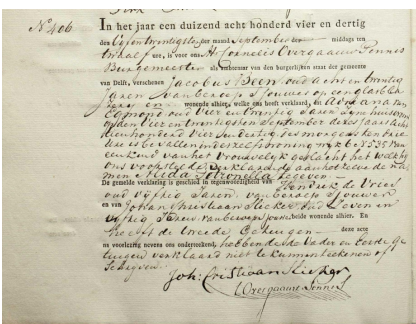 N° 406
In het jaar een duizend acht honderd vier en dertig
den Vijfentwintigsten der maand September des middags ten
twaalf ure, is voor ons Cornelis Overgaauw Pennis
Burgemeester als ambtenaar van den burgerlijken staat der gemeente
van Delft, verschenen Jacobus Been oud acht en twintig
Jaren van beroep Sjouwer
en wonende alhier, welke ons heeft verklaard, dat Adriana van
Egmond oud vier en twintig Jaren zijne huisvrouw
op den Vier en twintigsten September dezes Jaars
achttienhonderd Vier en dertig des morgens ten drie
ure is bevallen in Wijk 6 N° 535 van
een kind van het vrouwelijk geslacht het welk hij
ons voorstelde verklarende aan hetzelve de
namen Alida Petronella te geven
De gemelde verklaring is geschied in tegenwoordigheid van Hendrik de Vries
oud vijftig Jaren, van beroep Sjouwer
en van Johan Christiaan oud Zeven en
vijftig Jaren van beroep beide wonende alhier. En
heeft de tweede Getuigen deze acte
na voorlezing nevens ons onderteekend, hebbende de Vader en Eerste ge
tuigen verklaard niet te kunnen teekenen of
Schrijven
Joh: Cristiaan
C Overgaauw Pennis